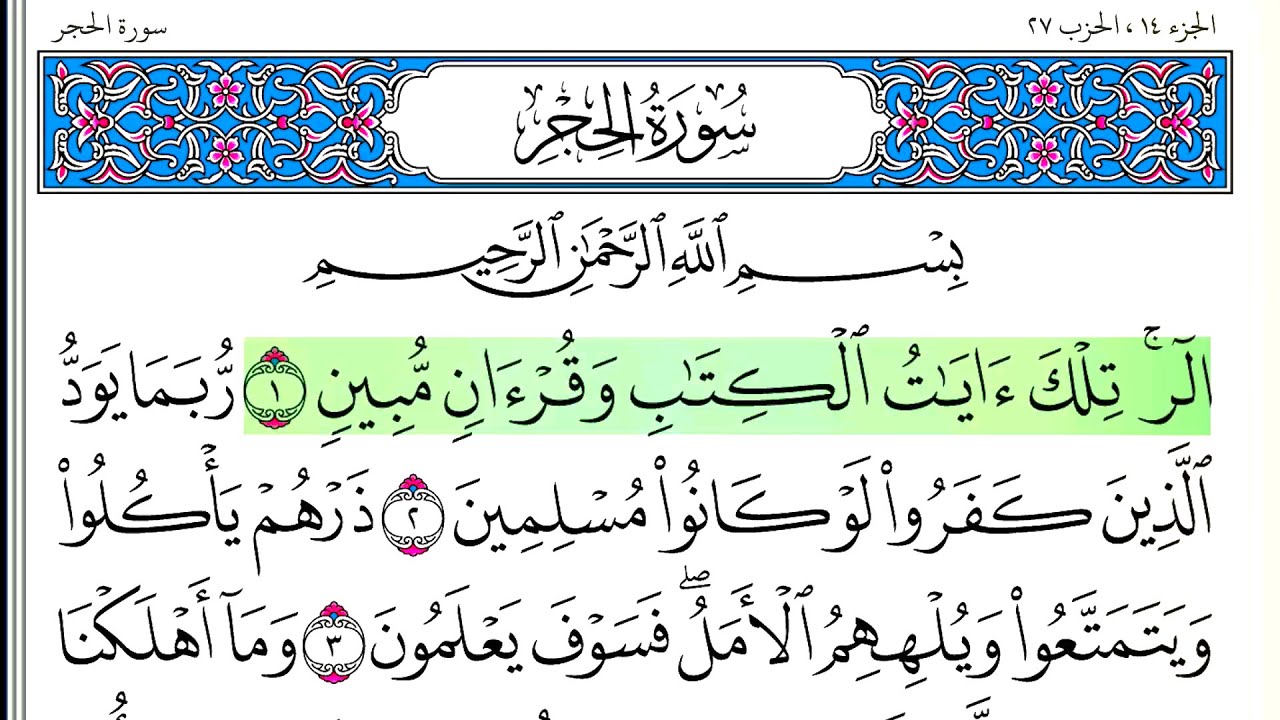 الجزء ١٤ ، الحزب ٢٧
سورة الحجر
سُورَةُ الحِجْرِ
بِسْمِ ٱللَّهِ ٱلرَّحْمَٰنِ ٱلرَّحِيمِ
الٓرۚ تِلْكَ ءَايَٰتُ ٱلْكِتَٰبِ وَقُرْءَانٍ مُّبِينٍ ١ رُّبَمَا يَوَدُّ
ٱلَّذِينَ كَفَرُوا۟ لَوْ كَانُوا۟ مُسْلِمِينَ ٢ ذَرْهُمْ يَأْكُلُوا۟
وَيَتَمَتَّعُوا۟ وَيُلْهِهِمُ ٱلْأَمَلُۖ فَسَوْفَ يَعْلَمُونَ ٣ وَمَآ أَهْلَكْنَا